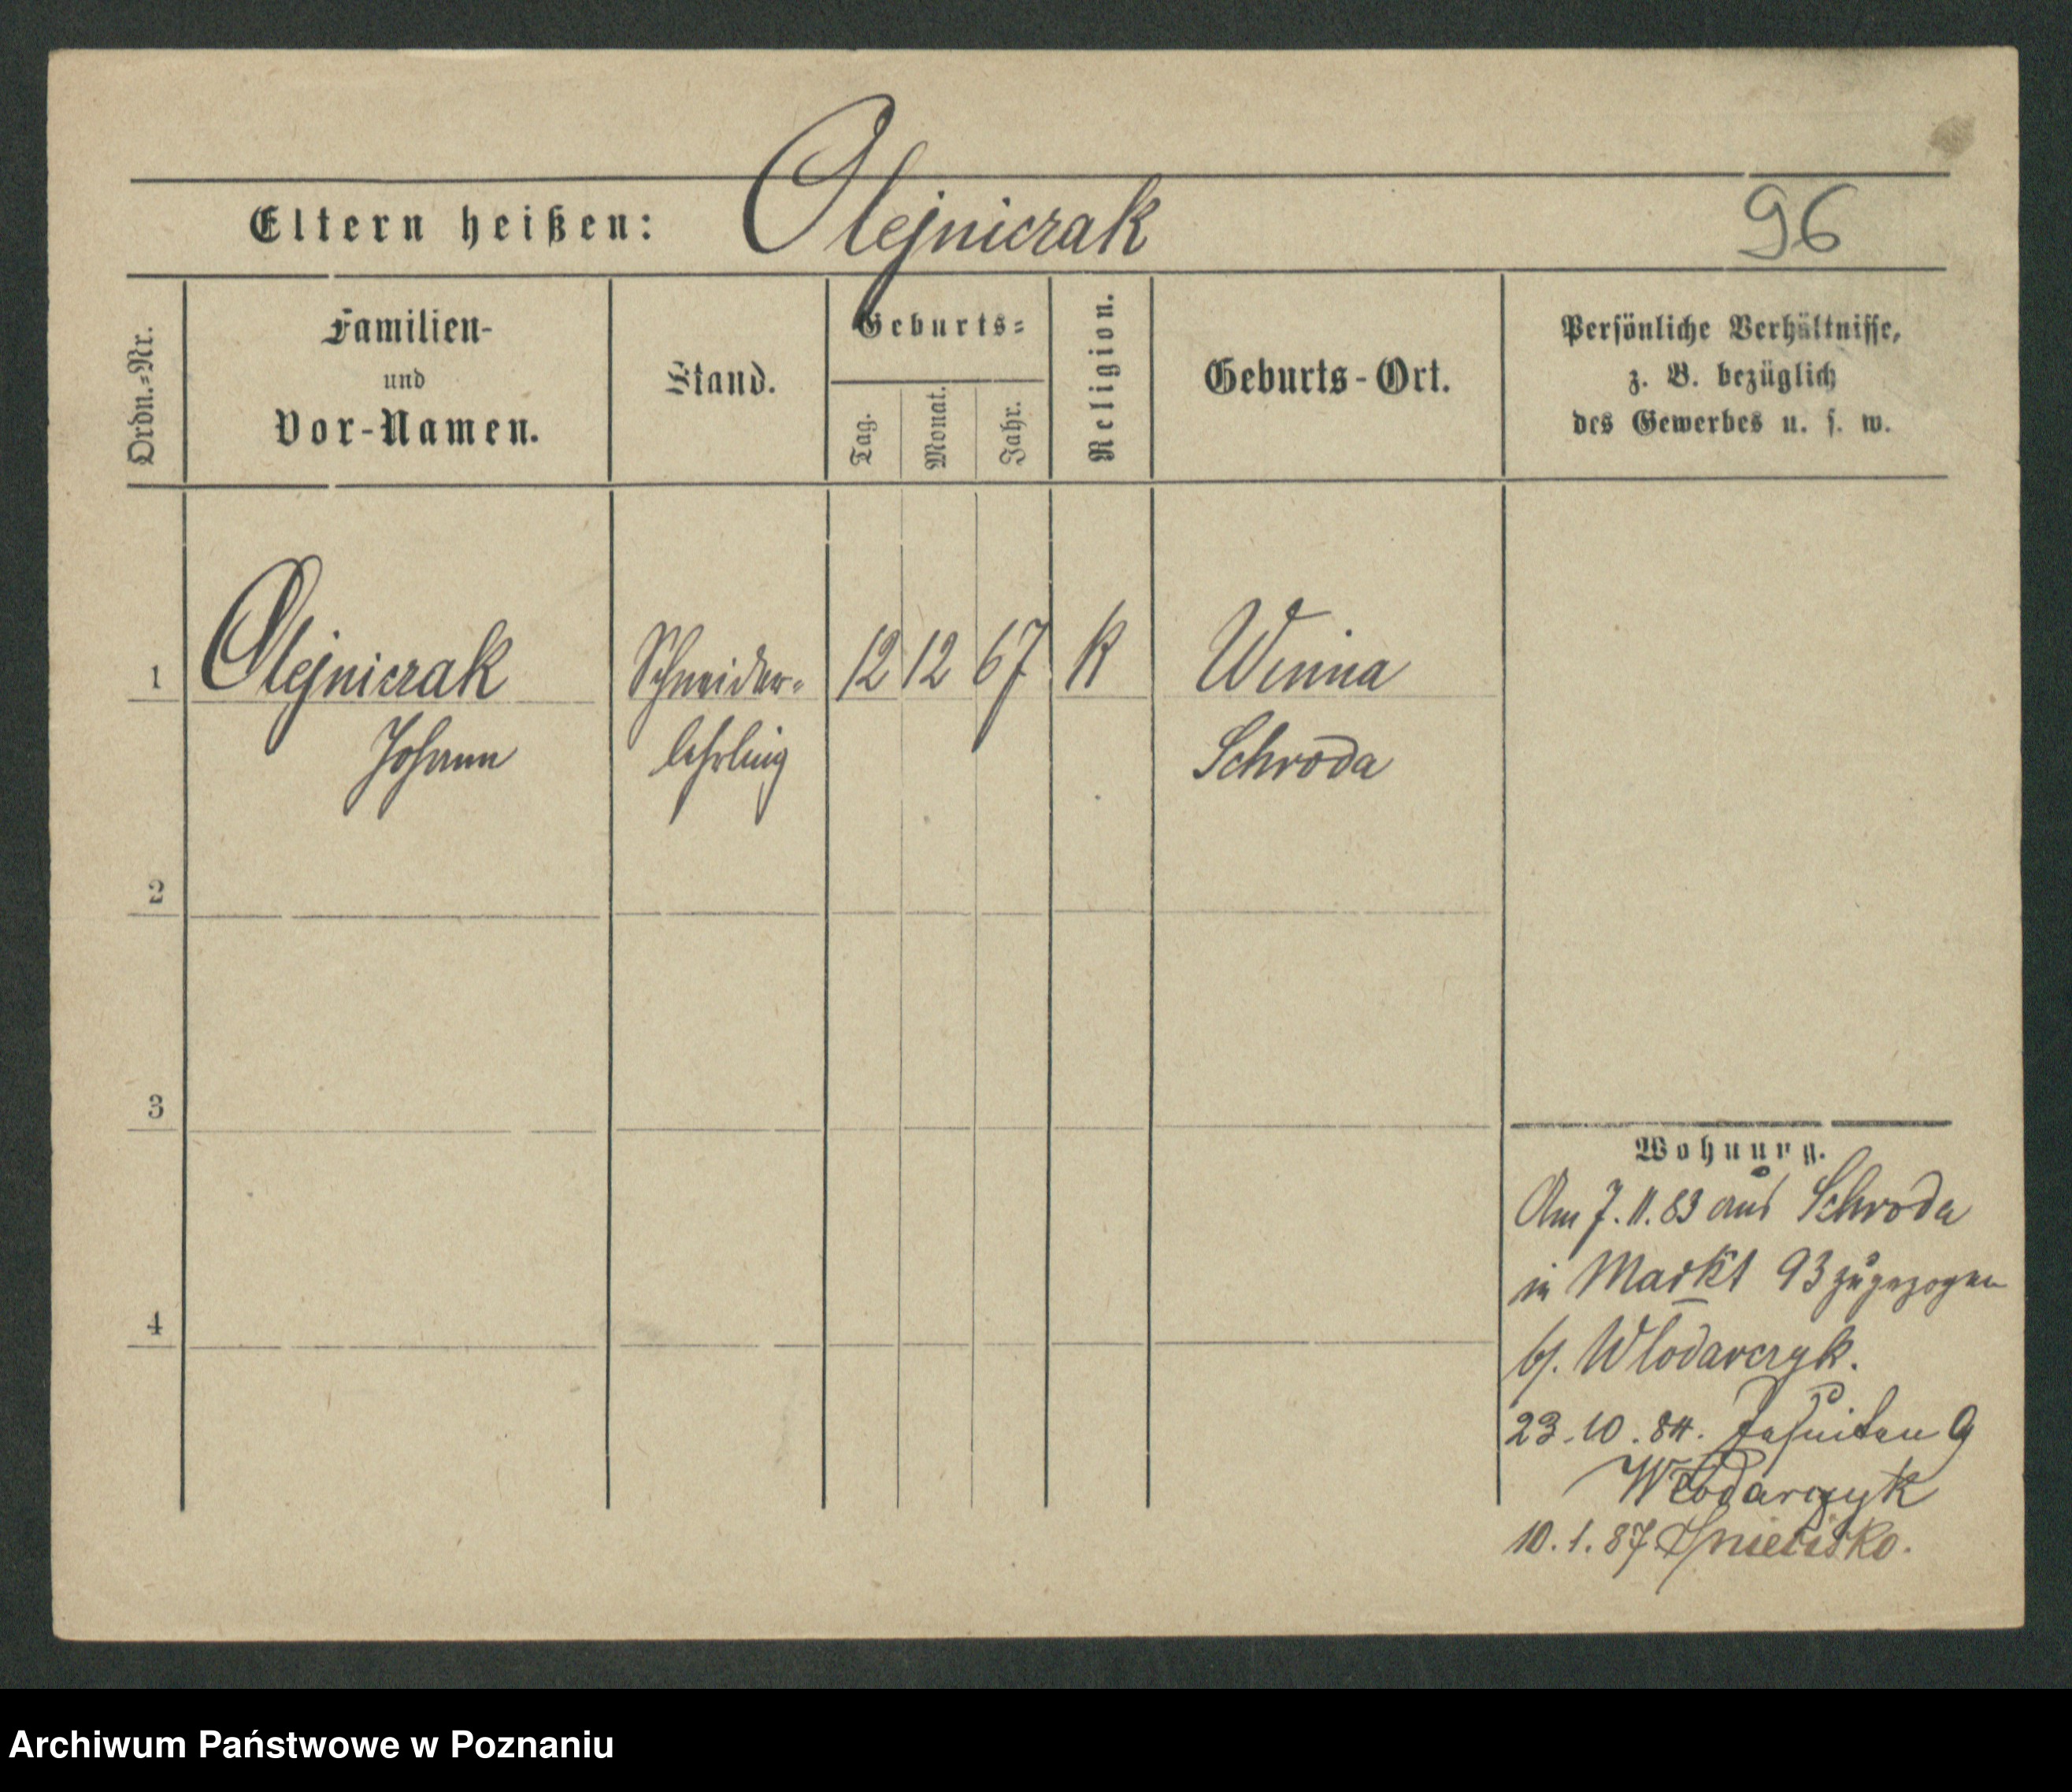 Eltern heißen: Olejniczak 96
Ordn.=Nr.
Familien-
und
Vor-Namen.
Stand.
Geburts=
Tag.
Monat.
Jahr.
Religion.
Geburts-Ort.
Persönliche Verhältnisse,
z. B. bezüglich
des Gewerbes u. s. w.
1 Olejniczak Schneider- 12 12 67 K Winna
Johann lehrling Schroda
2
3
4
Wohnung.
Am 7.11.83 aus Schroda
in Markt 93 zugezogen
bj. Wlodarczyk.
23.10.84. Jesuiten 9
Wlodarczyk
10.1.87
Archiwum Państwowe w Poznaniu